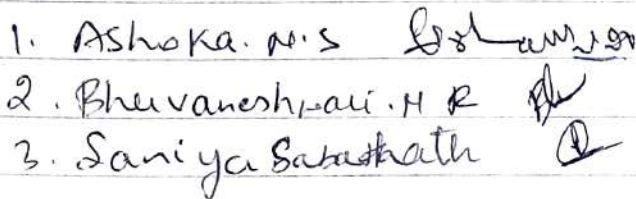 1. Ashoka. N.S
2. Bhuvaneshwari. H R
3. Saniya Sabahath